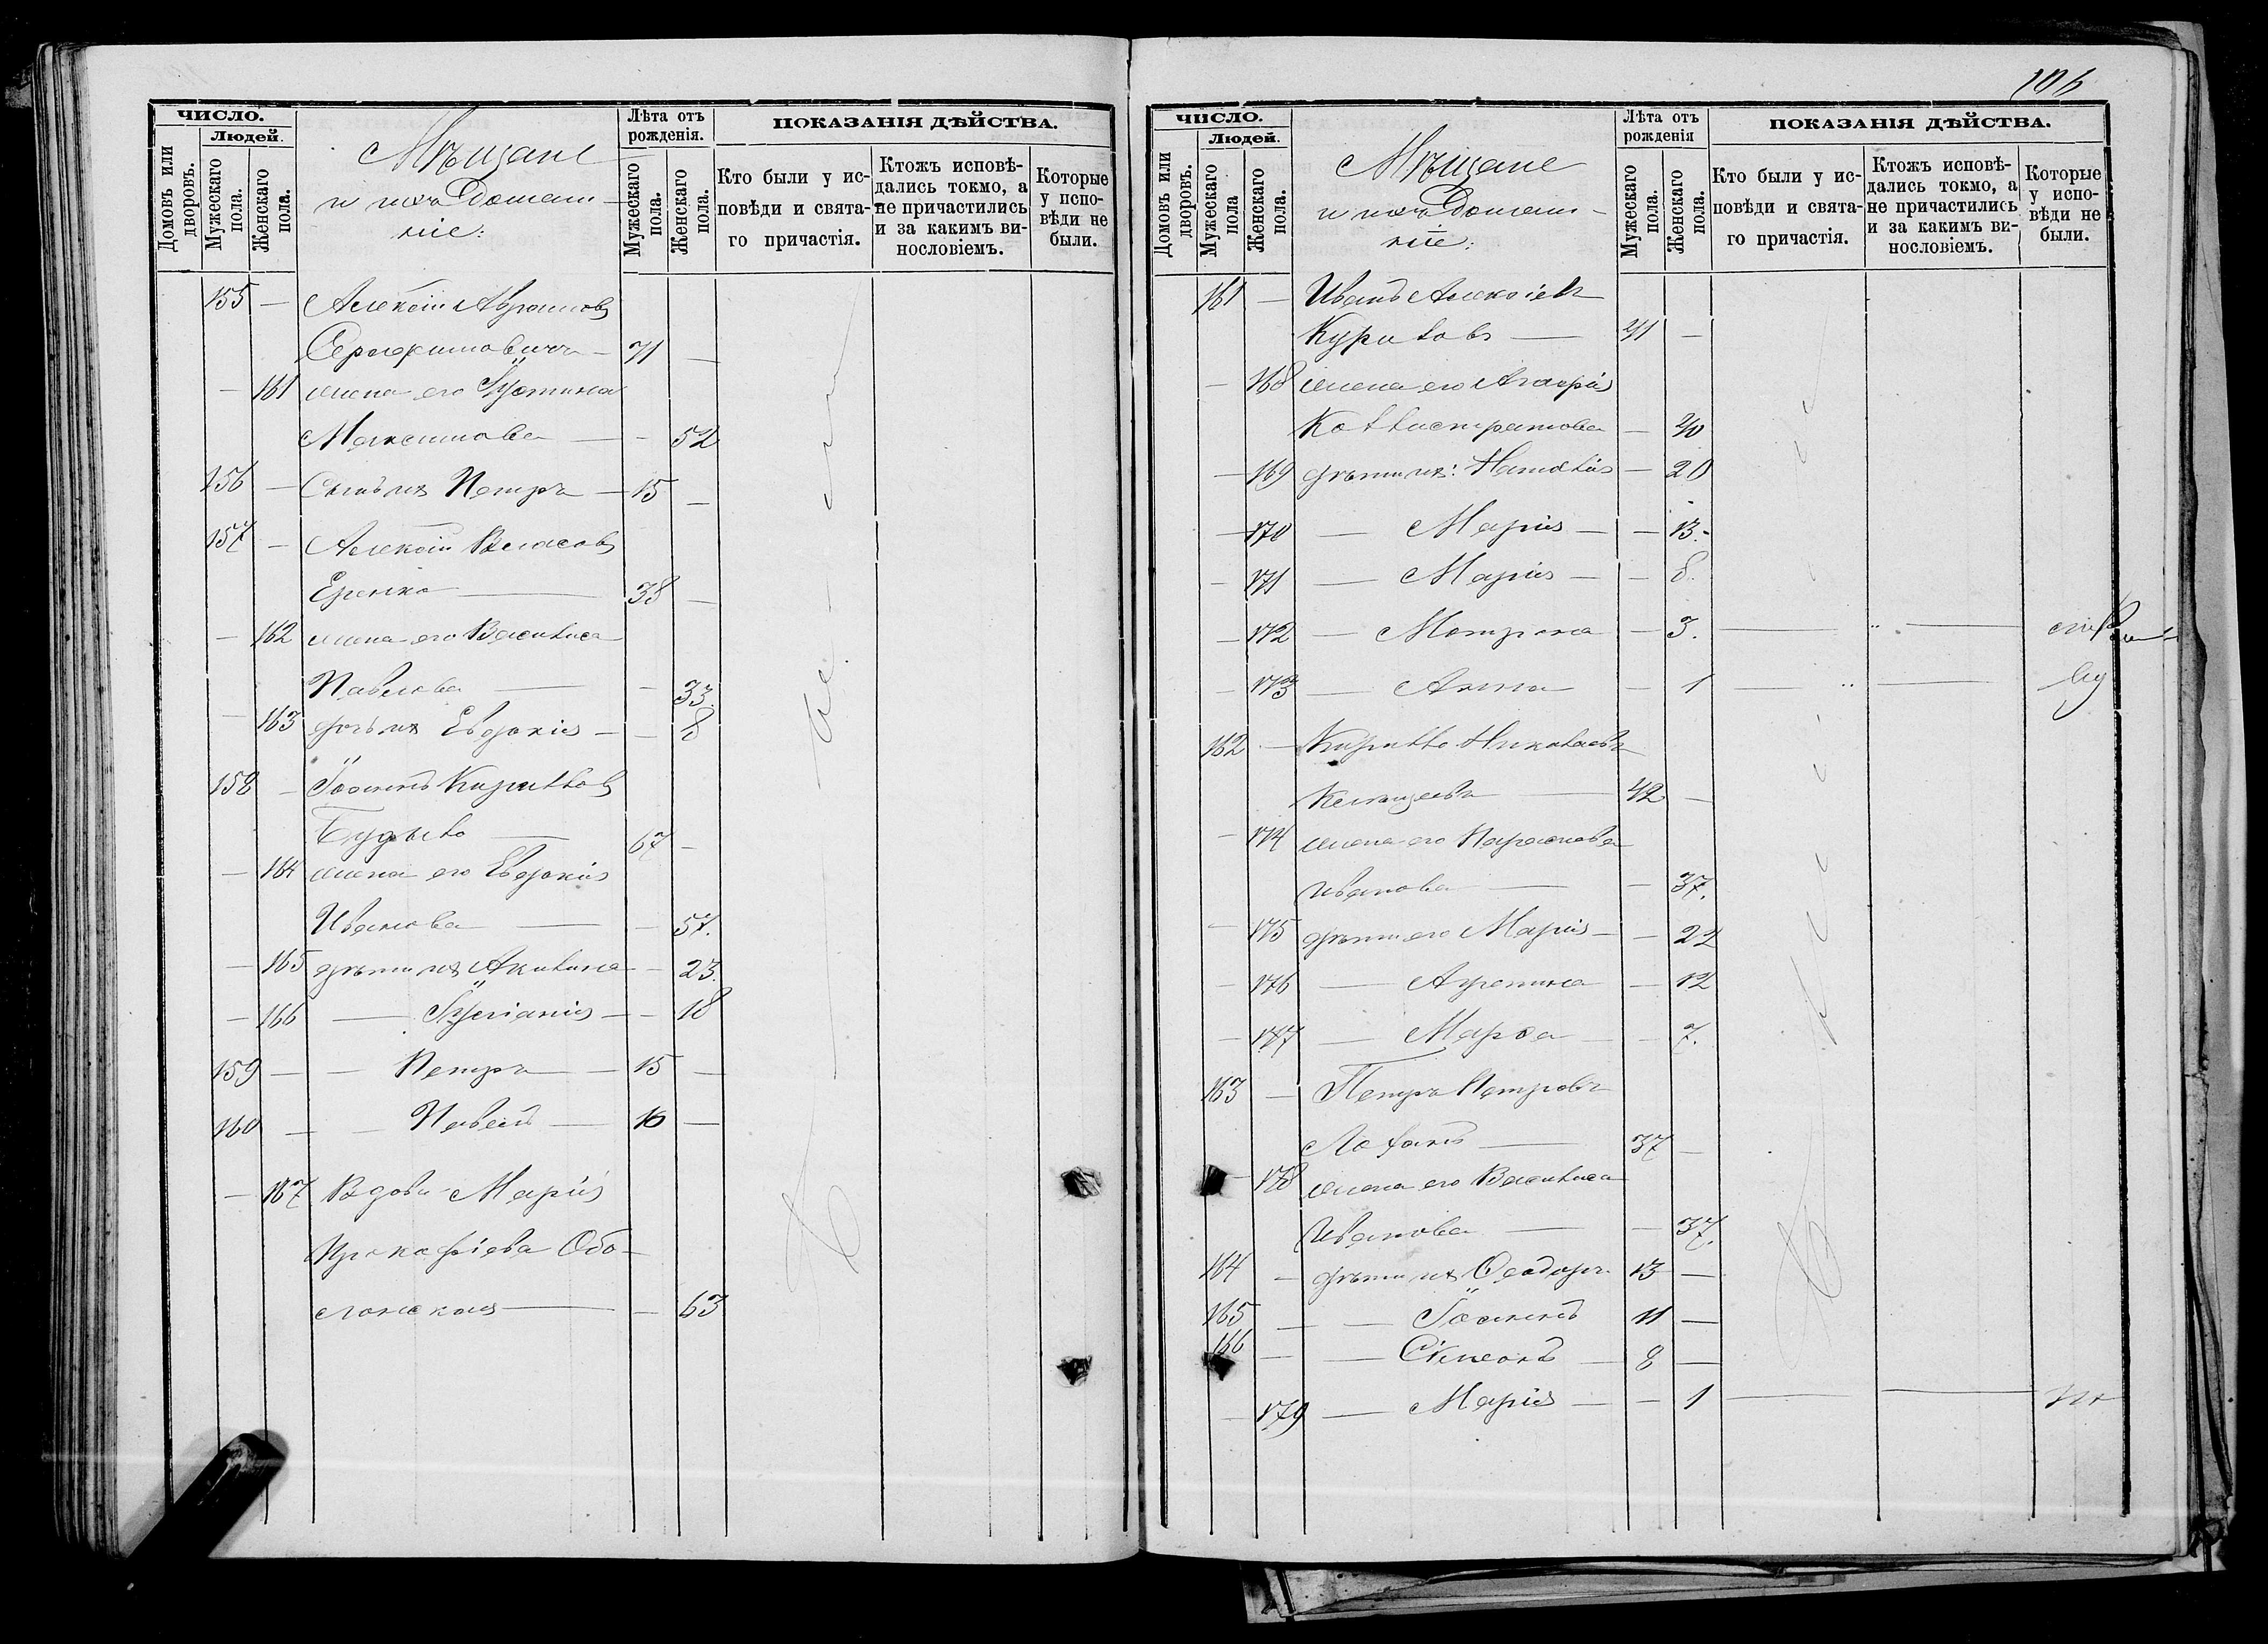 ЧИСЛО.
Людей.
Домовъ или дворовъ.
Мужескаго пола.
Женскаго пола.
Мѣщане
и ихъ Домаш-
ніе:
Лѣта отъ рожденія.
Мужескаго пола.
Женскаго пола.
ПОКАЗАНІЯ ДѢЙСТВА.
Кто были у ис-
повѣди и свята-
го причастія.
Ктожъ исповѣ-
дались токмо, а
не причастились
и за какимъ ви-
нословіемъ.
Которые
у испо-
вѣди не
были.
155 — Алексій Аврамовъ
71 —
— 161 жена его Іустина
Максимова — - 52
156 — Сынъ их Петръ — 15 —
157 — Алексій Власовъ
Еренко — 38 —
— 162 жена его Василиса
Павлова — - 33.
— 163 дочь их Евдокія — - 8
158 — Іоаннъ Кирилловъ
67 —
— 164 жена его Евдокія
Иванова — - 57.
— 165 дѣти их Акилина - 23.
— 166 — Іуліанія — - 18
159 — — Петръ — 15 —
160 — — Павелъ — 10 —
— 167 Вдова Марія
Прокофіева Обо-
лонская — — 63
106
ЧИСЛО.
Людей.
Домовъ или дворовъ.
Мужескаго пола
Женскаго пола.
Мѣщане
и ихъ Домаш-
ніе:
Лѣта отъ рожденія
Мужескаго пола.
Женскаго пола.
ПОКАЗАНІЯ ДѢЙСТВА.
Кто были у ис-
повѣди и свята-
го причастія.
Ктожъ исповѣ-
дались токмо, а
не причастились
и за какимъ ви-
нословіемъ.
Которые
у испо-
вѣди не
были.
161 — Иванъ Алексіевъ
Куриловъ — 41 —
— 168 жена его Агафія
Каллистратова — 40
— 169 дѣти их: Наталія — 20
— 170 — Марія — - 13.
— 171 — Марія — - 8.
— 172 — Матрона — 3. — " —
— 173 — Анна — 1 — " —
162 — Кирилло Николаевъ
42 —
— 174 жена его Параскева
Иванова — - 37.
— 175 дѣти его Марія — - 22
— 176 — Агрепина — 12
— 177 — Марѳа — - 7.
163 — Петръ Петровъ
37 —
— 178 жена его Василиса
Иванова — — 37.
164 — дѣти их Ѳеодоръ 13 —
165 — — Іоаннъ 11 —
166 — — Сімеонъ — 8 —
— 179 — Марія — - 1 — —